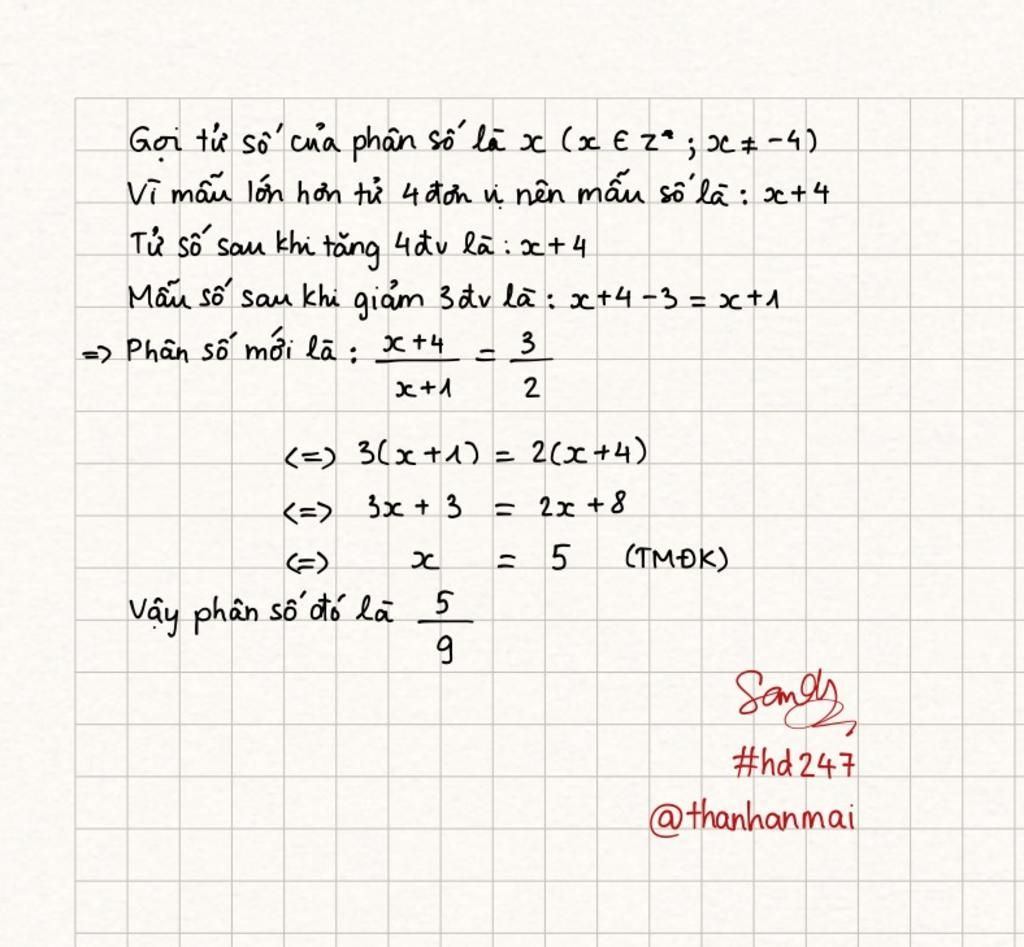 Gọi tử số của phân số là x (x ∈ Z*; x ≠ -4)
Vì mẫu lớn hơn tử 4 đơn vị nên mẫu số là: x+4
Tử số sau khi tăng 4đv là: x+4
Mẫu số sau khi giảm 3đv là: x+4-3 = x+1
=> Phân số mới là: (x+4)/(x+1) = 3/2
<=> 3(x+1) = 2(x+4)
<=> 3x + 3 = 2x + 8
<=> x = 5 (TMĐK)
Vậy phân số đó là 5/9
#hd247
@thanhanmai